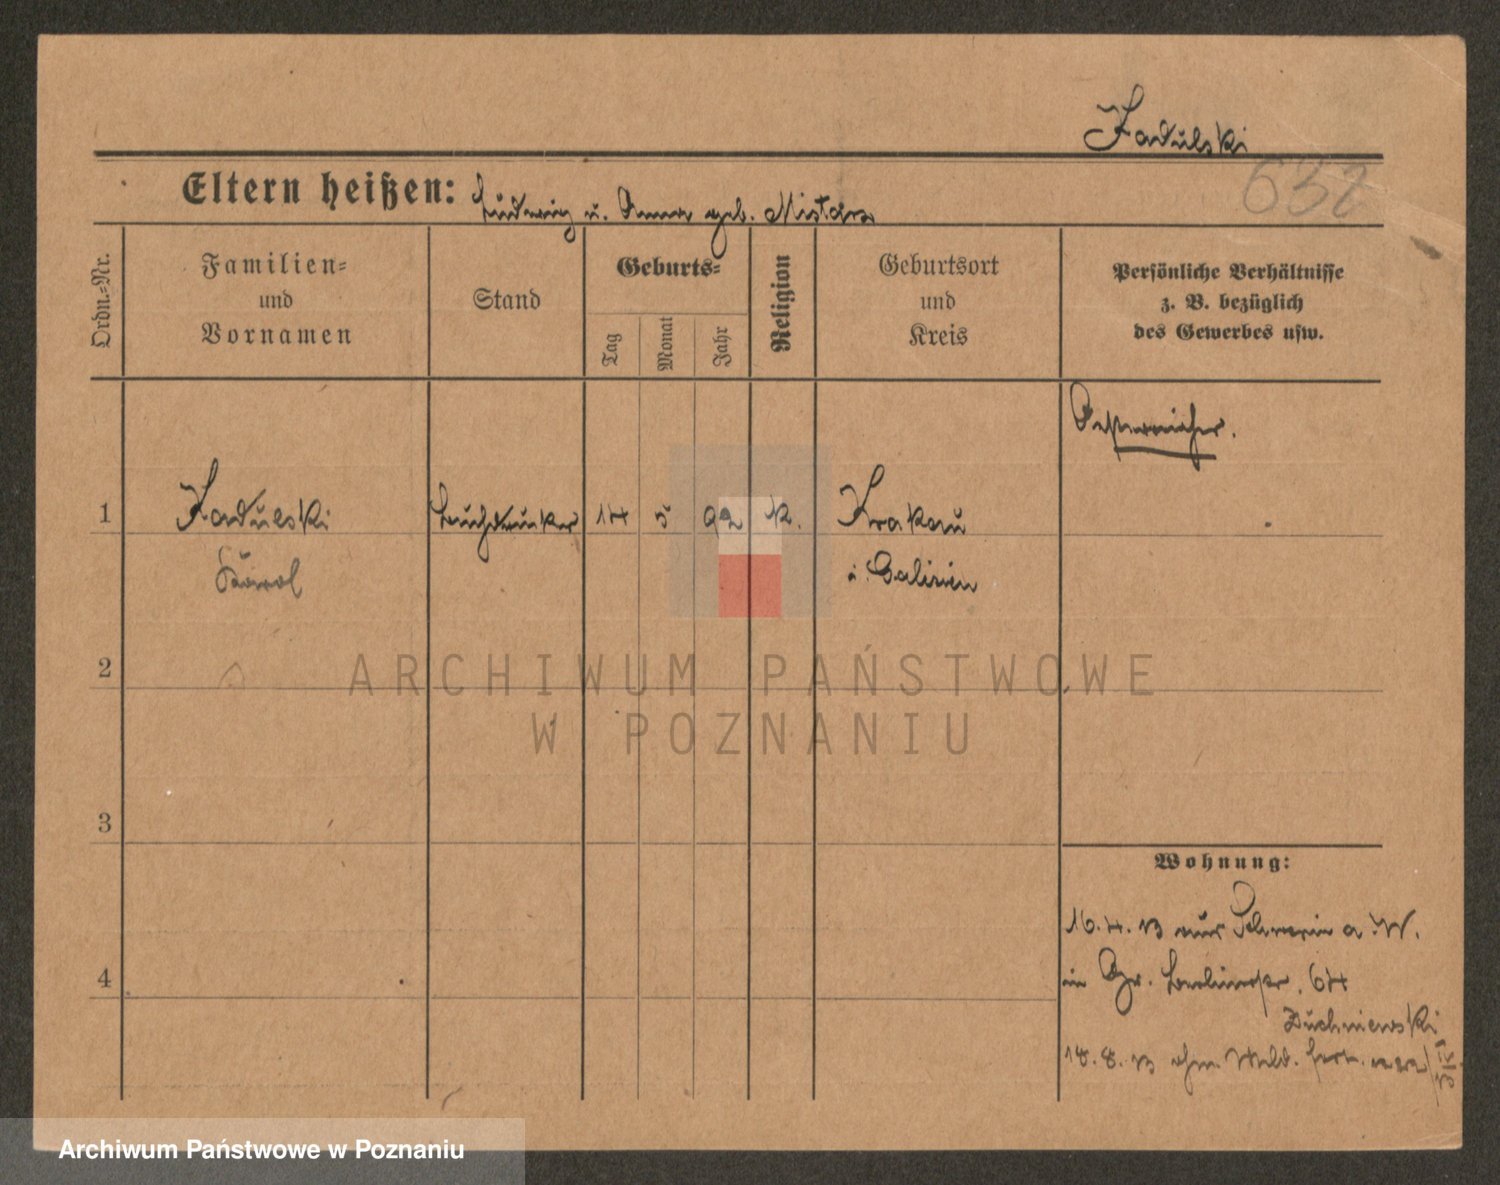 Kadulski
632
Eltern heißen: Ludwig u. Anna geb. Mistarz
Ordn.-Nr.
Familien-
und
Vornamen
Stand
Geburts-
Tag
Monat
Jahr
Religion
Geburtsort
und
Kreis
Persönliche Verhältnisse
z. B. bezüglich
des Gewerbes usw.
Oesterreicher.
1
Kadulski
Karol
Buchdrucker
14
5
92
k.
Krakau
i. Galizien
2
3
4
Wohnung:
16.4.13 aus Schwerin a. W.
in Gr. Berlinerstr. 64
Duchniewski
18.8.13 ohne Meld. fort
ARCHIWUM PAŃSTWOWE
W POZNANIU
Archiwum Państwowe w Poznaniu